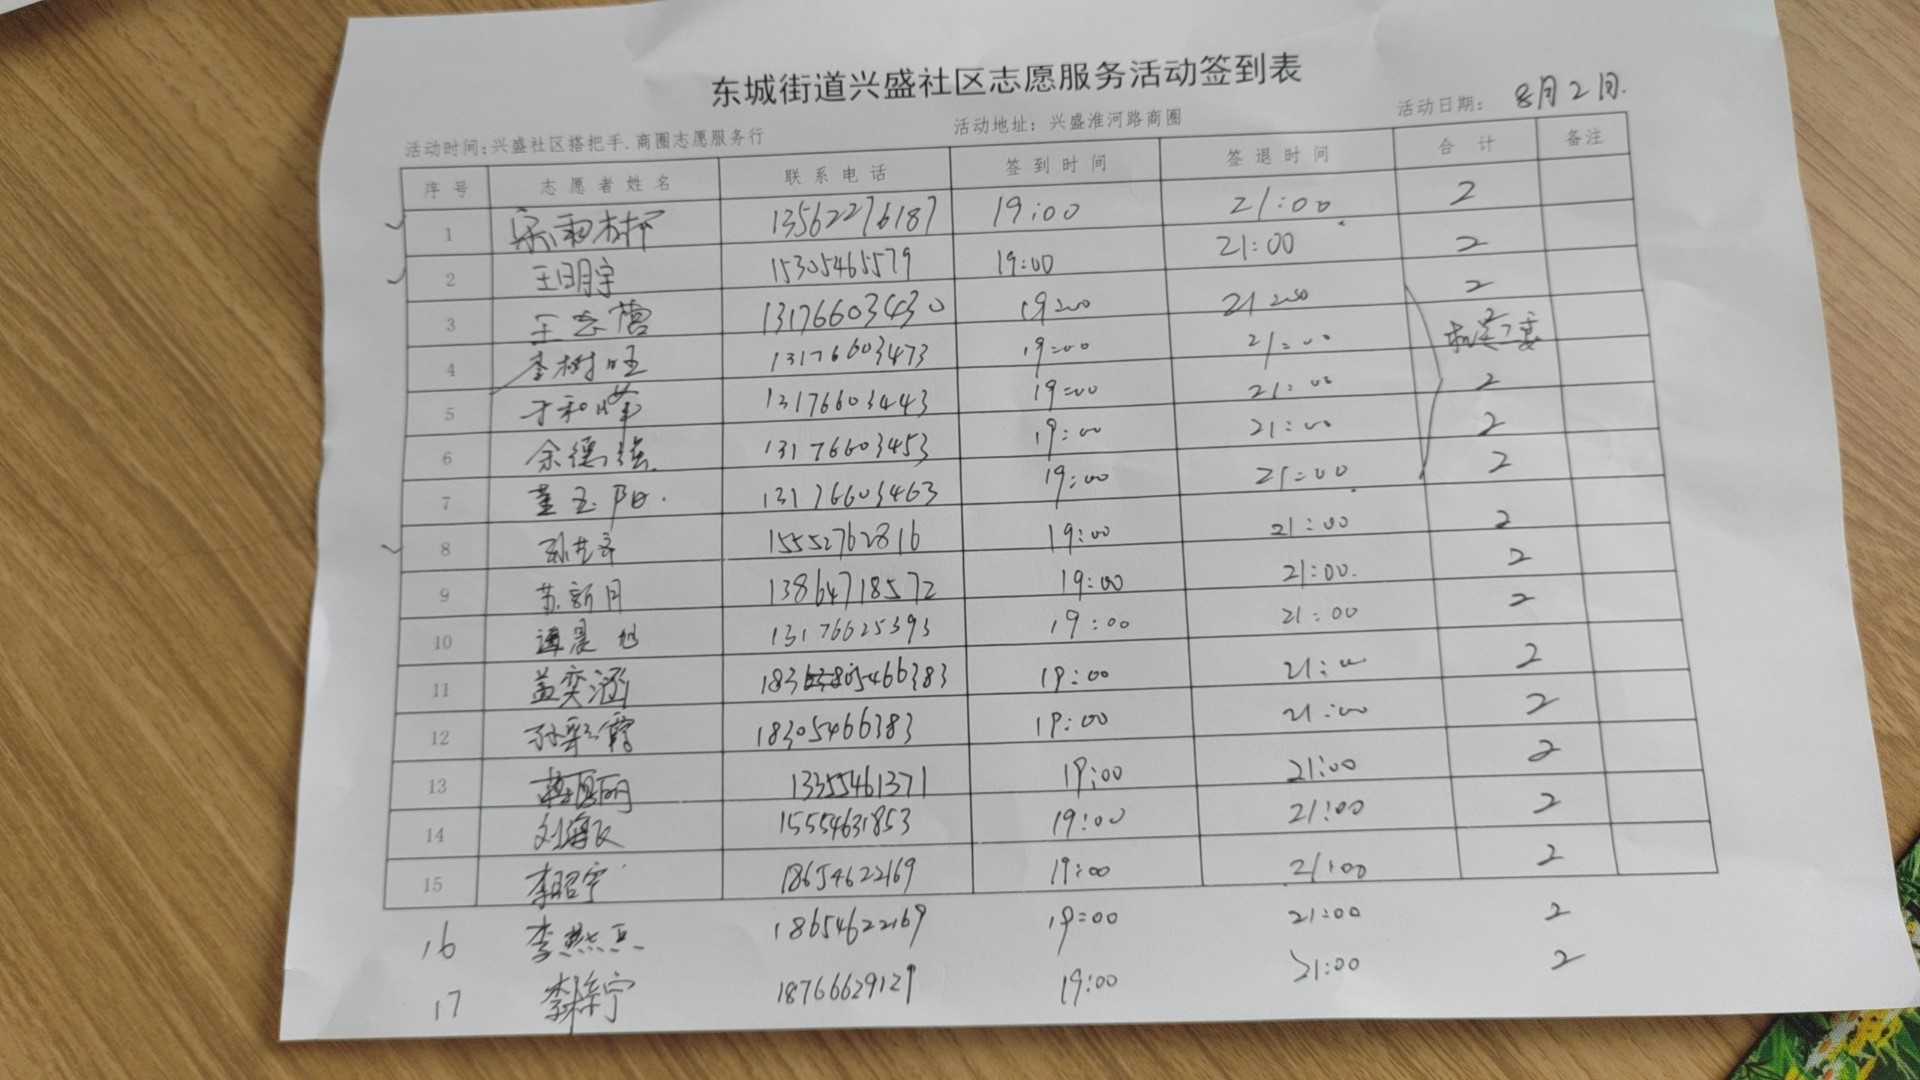 东城街道兴盛社区志愿服务活动签到表
活动时间:兴盛社区搭把手.商圈志愿服务行 活动地址: 兴盛淮河路商圈 活动日期: 8月2日.
序号 志愿者姓名 联系电话 签到时间 签退时间 合计 备注
1 13562276187 19:00 21:00 2
2 王明宇 15305465579 19:00 21:00 2
3 王志 13176603430 19:00 21:00 2
4 李树旺 13176603473 19:00 21:00 2
5 于和 13176603443 19:00 21:00 2
6 余德强 13176603453 19:00 21:00 2
7 董玉阳. 13176603463 19:00 21:00 2
8 孙艺 15552762816 19:00 21:00 2
9 苏新月 13864718572 19:00 21:00. 2
10 谭晨旭 13176625393 19:00 21:00 2
11 盖奕涵 05466383 19:00 21:00 2
12 孙彩霞 18305466383 19:00 21:00 2
13 丽 13355461371 19:00 21:00 2
14 刘海 15554631853 19:00 21:00 2
15 李昭宇 18654622169 19:00 21:00 2
16 李 18654622169 19:00 21:00 2
17 宁 18766629121 19:00 21:00 2